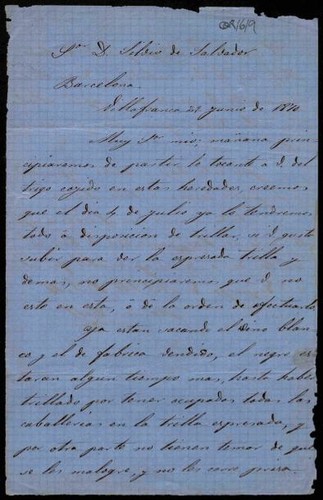 Sr. D. Silvio de Salvador
Barcelona
Villafranca 27 Junio de 1874
Muy Sr. mio; mañana prin-
cipiaremos de partir lo tocante a V. del
trigo cojido en estas heredades, creemos
que el dia 4 de julio ya lo tendremos
todo á disposicion de trillar, si V. gusta
subir para ver la espresada trilla y
demas, no principiaremos que V. no
esté en esta, ó dé la orden de efectuarlo
Ya estan sacando el vino blan-
co, y el de fabrica vendido, el negro es-
taran algun tiempo mas, hasta haber
trillado por tener ocupadas todas las
caballerias en la trilla espresada, y
por otra parte no tienen temor de que
se les malogre, y no les corre prisa.